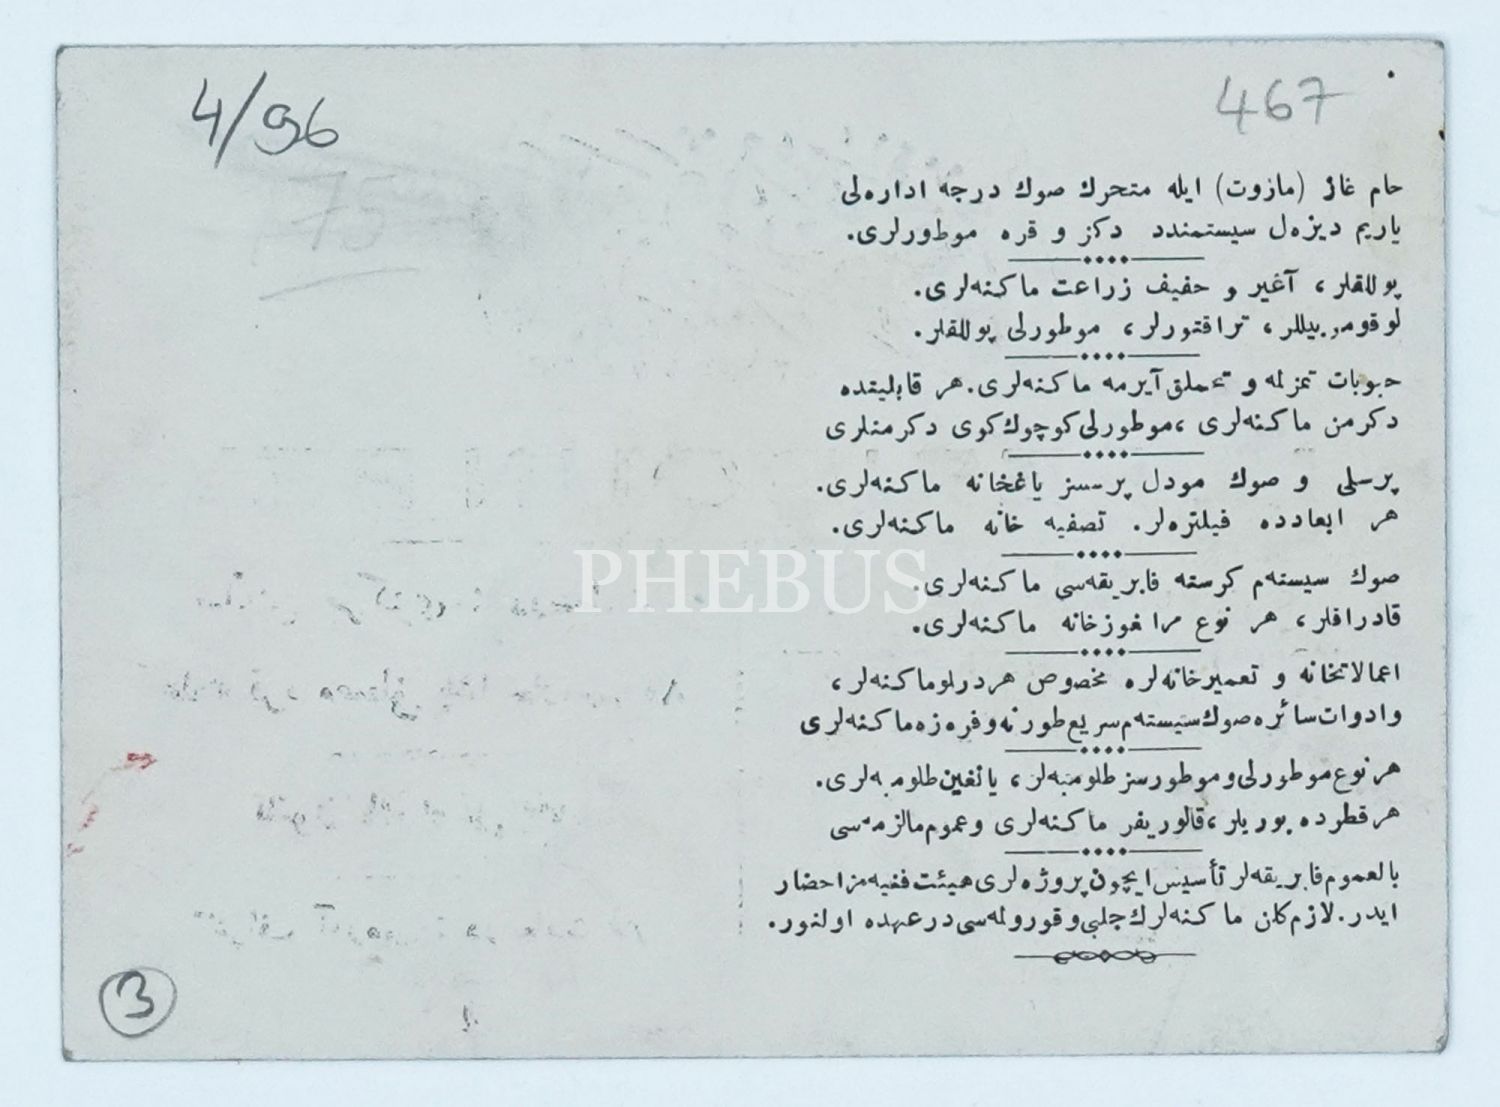 4/96
467
75
حام غاز (مازوت) ایله متحرك صوك درجه اداره‌لی
یاریم دیزه‌ل سیستمنده دكز و قره موطورلری.
پوللقلر، آغیر و حفیف زراعت ماكنه‌لری.
لوقوموبیللر، تراقتورلر، موطورلی پوللقلر.
حبوبات تمزلمه و تخملق آیرمه ماكنه‌لری. هر قابلیتده
دكرمن ماكنه‌لری، موطورلی كوچوك كوی دكرمنلری
پرسلی و صوك مودل پرسسز یاغخانه ماكنه‌لری.
هر ابعادده فیلتره‌لر. تصفیه خانه ماكنه‌لری.
PHEBUS
صوك سیسته‌م كرسته فابریقه‌سی ماكنه‌لری.
قادرافلر، هر نوع مراغوزخانه ماكنه‌لری.
اعمالاتخانه و تعمیرخانه‌لره مخصوص هر درلو ماكنه‌لر،
وادوات سائره صوك سیسته‌م سریع طورنه و فره‌زه ماكنه‌لری
هر نوع موطورلی و موطورسز طلومبه‌لر، یانغین طلومبه‌لری.
هر قطرده بوریلر، قالوریفر ماكنه‌لری و عموم مالزمه‌سی
بالعموم فابریقه‌لر تأسیس ایچون پروژه‌لری هیئت فنیه‌مز احضار
ایدر. لازم كلن ماكنه‌لرك جلبی و قورولمه‌سی در عهده اولنور.
3